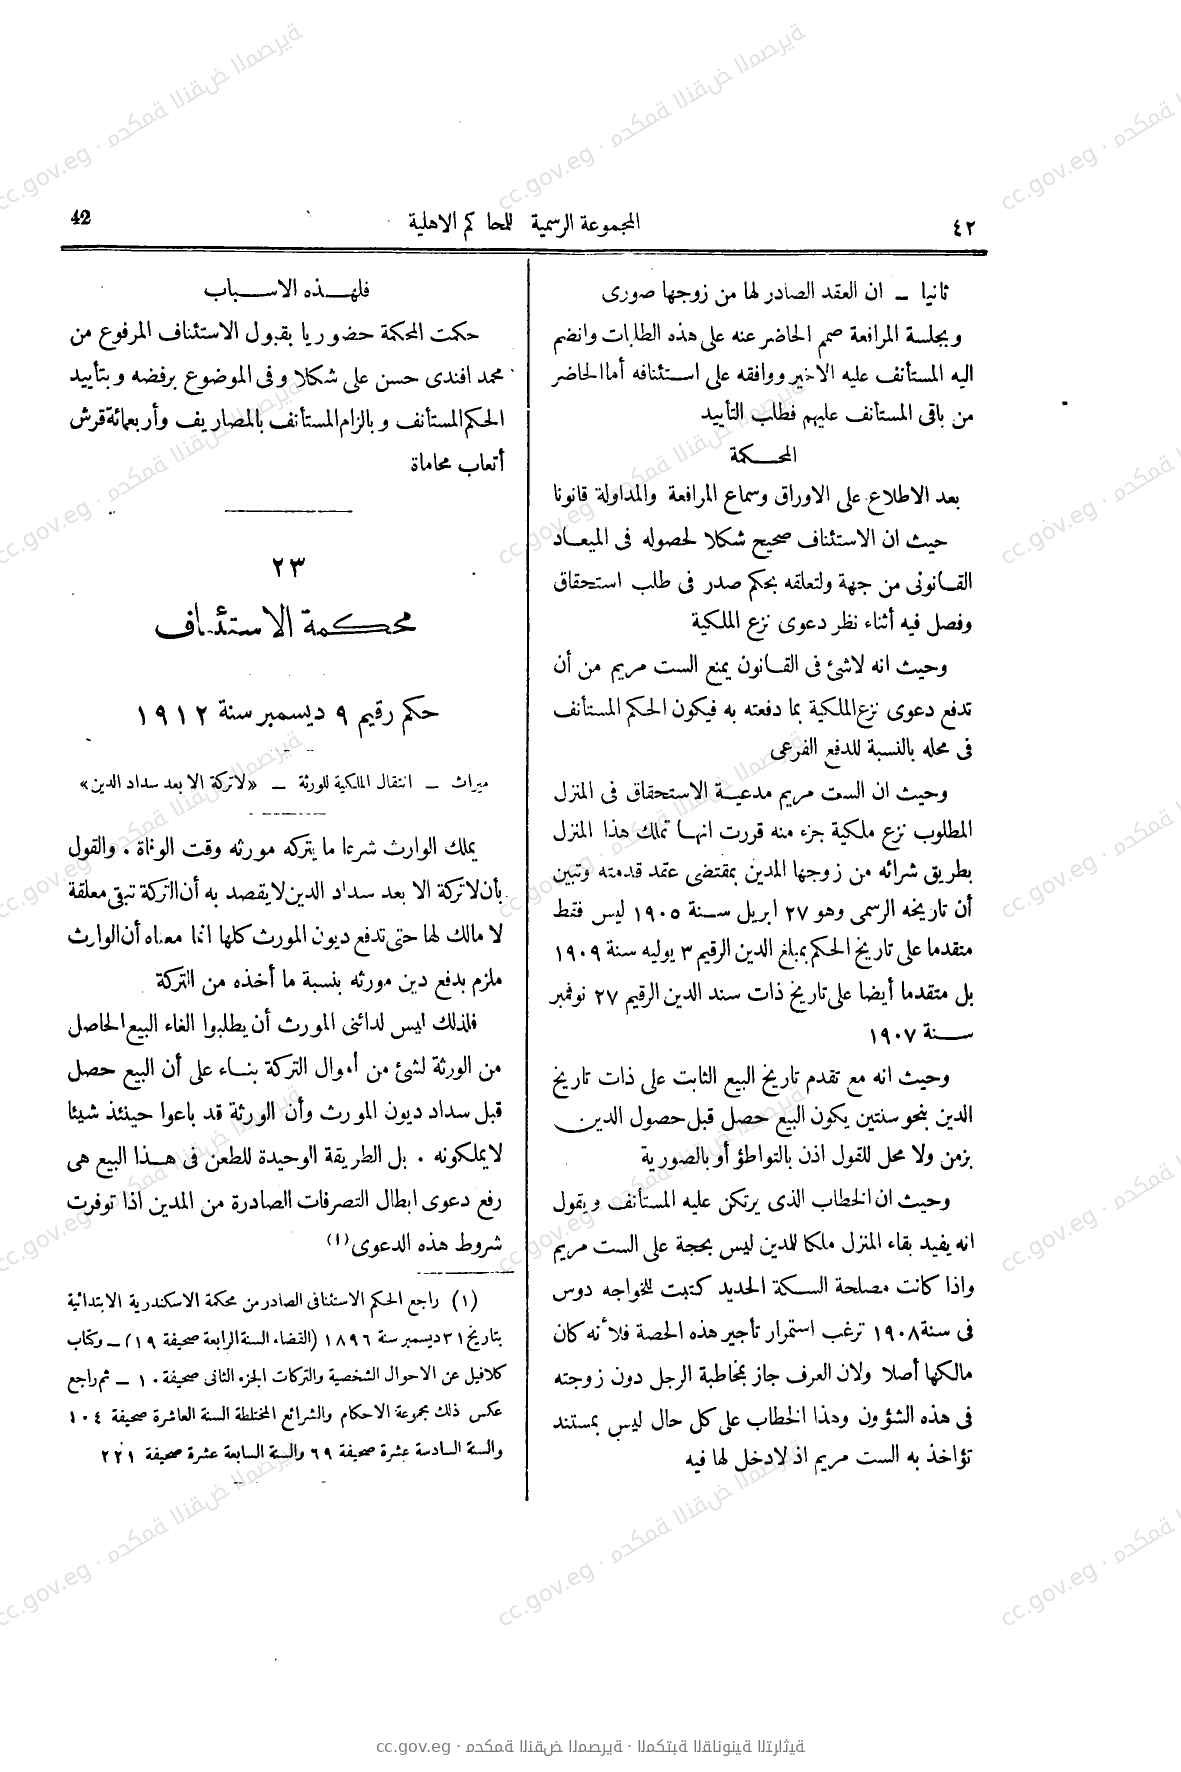 ٤٢
المجموعة الرسمية للمحاكم الاهلية
42
ثانيا – ان العقد الصادر لها من زوجها صورى
وبجلسة المرافعة صمم الحاضر عنه على هذه الطلبات وانضم
اليه المستأنف عليه الاخير ووافقه على استئنافه أما الحاضر
من باقى المستأنف عليهم فطلب التأييد
المحكمة
بعد الاطلاع على الاوراق وسماع المرافعة والمداولة قانونا
حيث ان الاستئناف صحيح شكلا لحصوله فى الميعاد
القانونى من جهة ولتعلقه بحكم صدر فى طلب استحقاق
وفصل فيه أثناء نظر دعوى نزع الملكية
وحيث انه لاشئ فى القانون يمنع الست مريم من أن
تدفع دعوى نزع الملكية بما دفعته به فيكون الحكم المستأنف
فى محله بالنسبة للدفع الفرعى
وحيث ان الست مريم مدعية الاستحقاق فى المنزل
المطلوب نزع ملكية جزء منه قررت انها تملك هذا المنزل
بطريق شرائه من زوجها المدين بمقتضى عقد قدمته وتبين
أن تاريخه الرسمى وهو ٢٧ ابريل سنة ١٩٠٥ ليس فقط
متقدما على تاريخ الحكم بمبلغ الدين الرقيم ٣ يوليه سنة ١٩٠٩
بل متقدما أيضا على تاريخ ذات سند الدين الرقيم ٢٧ نوفمبر
سنة ١٩٠٧
وحيث انه مع تقدم تاريخ البيع الثابت على ذات تاريخ
الدين بنحو سنتين يكون البيع حصل قبل حصول الدين
بزمن ولا محل للقول اذن بالتواطؤ أو بالصورية
وحيث ان الخطاب الذى يرتكن عليه المستأنف ويقول
انه يفيد بقاء المنزل ملكا للمدين ليس بحجة على الست مريم
واذا كانت مصلحة السكة الحديد كتبت للخواجه دوس
فى سنة ١٩٠٨ ترغب استمرار تأجير هذه الحصة فلأنه كان
مالكها أصلا ولان العرف جاز بمخاطبة الرجل دون زوجته
فى هذه الشؤون وهذا الخطاب على كل حال ليس بمستند
تؤاخذ به الست مريم اذ لادخل لها فيه
فلهذه الاسباب
حكمت المحكمة حضوريا بقبول الاستئناف المرفوع من
محمد افندى حسن على شكلا وفى الموضوع برفضه وبتأييد
الحكم المستأنف وبالزام المستأنف بالمصاريف وأربعمائة قرش
أتعاب محاماة
٢٣
محكمة الاستئناف
حكم رقيم ٩ ديسمبر سنة ١٩١٢
ميراث – انتقال الملكية للورثة – «لاتركة الا بعد سداد الدين»
يملك الوارث شرعا ما يتركه مورثه وقت الوفاة . والقول
بأن لاتركة الا بعد سداد الدين لايقصد به أن التركة تبقى معلقة
لا مالك لها حتى تدفع ديون المورث كلها انما معناه أن الوارث
ملزم بدفع دين مورثه بنسبة ما أخذه من التركة
فلذلك ليس لدائنى المورث أن يطلبوا الغاء البيع الحاصل
من الورثة لشئ من أموال التركة بناء على أن البيع حصل
قبل سداد ديون المورث وأن الورثة قد باعوا حينئذ شيئا
لايملكونه . بل الطريقة الوحيدة للطعن فى هذا البيع هى
رفع دعوى ابطال التصرفات الصادرة من المدين اذا توفرت
شروط هذه الدعوى (١)
(١) راجع الحكم الاستئنافى الصادر من محكمة الاسكندرية الابتدائية
بتاريخ ٣١ ديسمبر سنة ١٨٩٦ (القضاء السنة الرابعة صحيفة ١٩) – وكتاب
كلافيل عن الاحوال الشخصية والتركات الجزء الثانى صحيفة ١٠ – ثم راجع
عكس ذلك بمجموعة الاحكام والشرائع المختلطة السنة العاشرة صحيفة ١٠٤
والسنة السادسة عشرة صحيفة ٦٩ والسنة السابعة عشرة صحيفة ٢٢١
cc.gov.eg · محكمة النقض المصرية · المكتبة القانونية التراثية